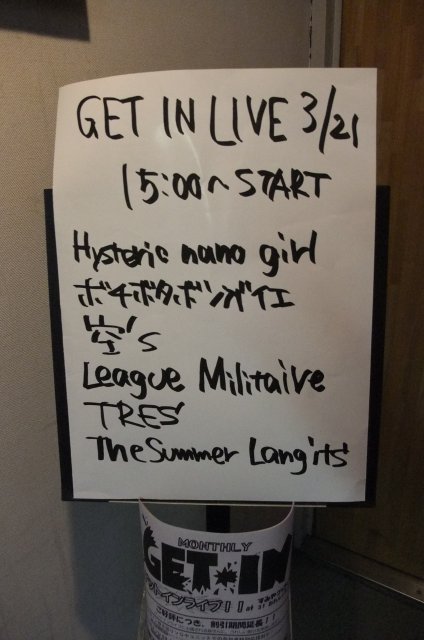 GET IN LIVE 3/21
15:00〜START
Hysteric nano girl
ボチボタボンガイエ
空's
League Militaive
TRES
The Summer Lang'its
MONTHLY
GET IN
ットインライブ!!
ご好評につき、割引期間延長!!